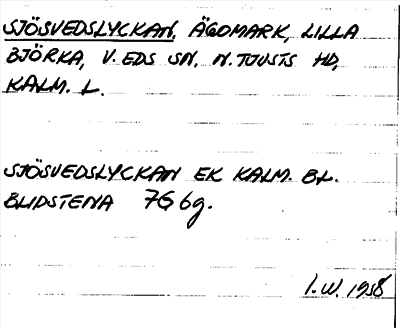 SJÖSVEDSLYCKAN, ÄGOMARK, LILLA
BJÖRKA, V. EDS SN, N. TJUSTS HD,
KALM. L.
SJÖSVEDSLYCKAN EK KALM. BL.
BLIDSTENA 7G 6g.
I.W. 1958